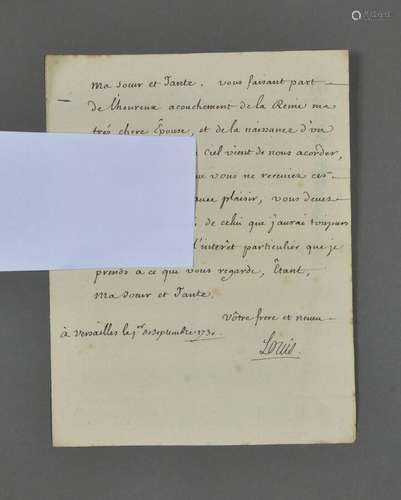 Ma Soeur et Tante. vous faisant part
de l'heureux acouchement de la Reine ma
très chere Épouse, et de la naissance d'un
ciel vient de nous acorder,
vous ne receviez ces
plaisir, vous devez
de celui que j'aurai toujours
l'interêt particulier que je
prends à ce qui vous regarde, Étant,
Ma Soeur et Tante.
Vôtre frere et neveu
à Versailles le 1er Septembre 1730.
Louis.